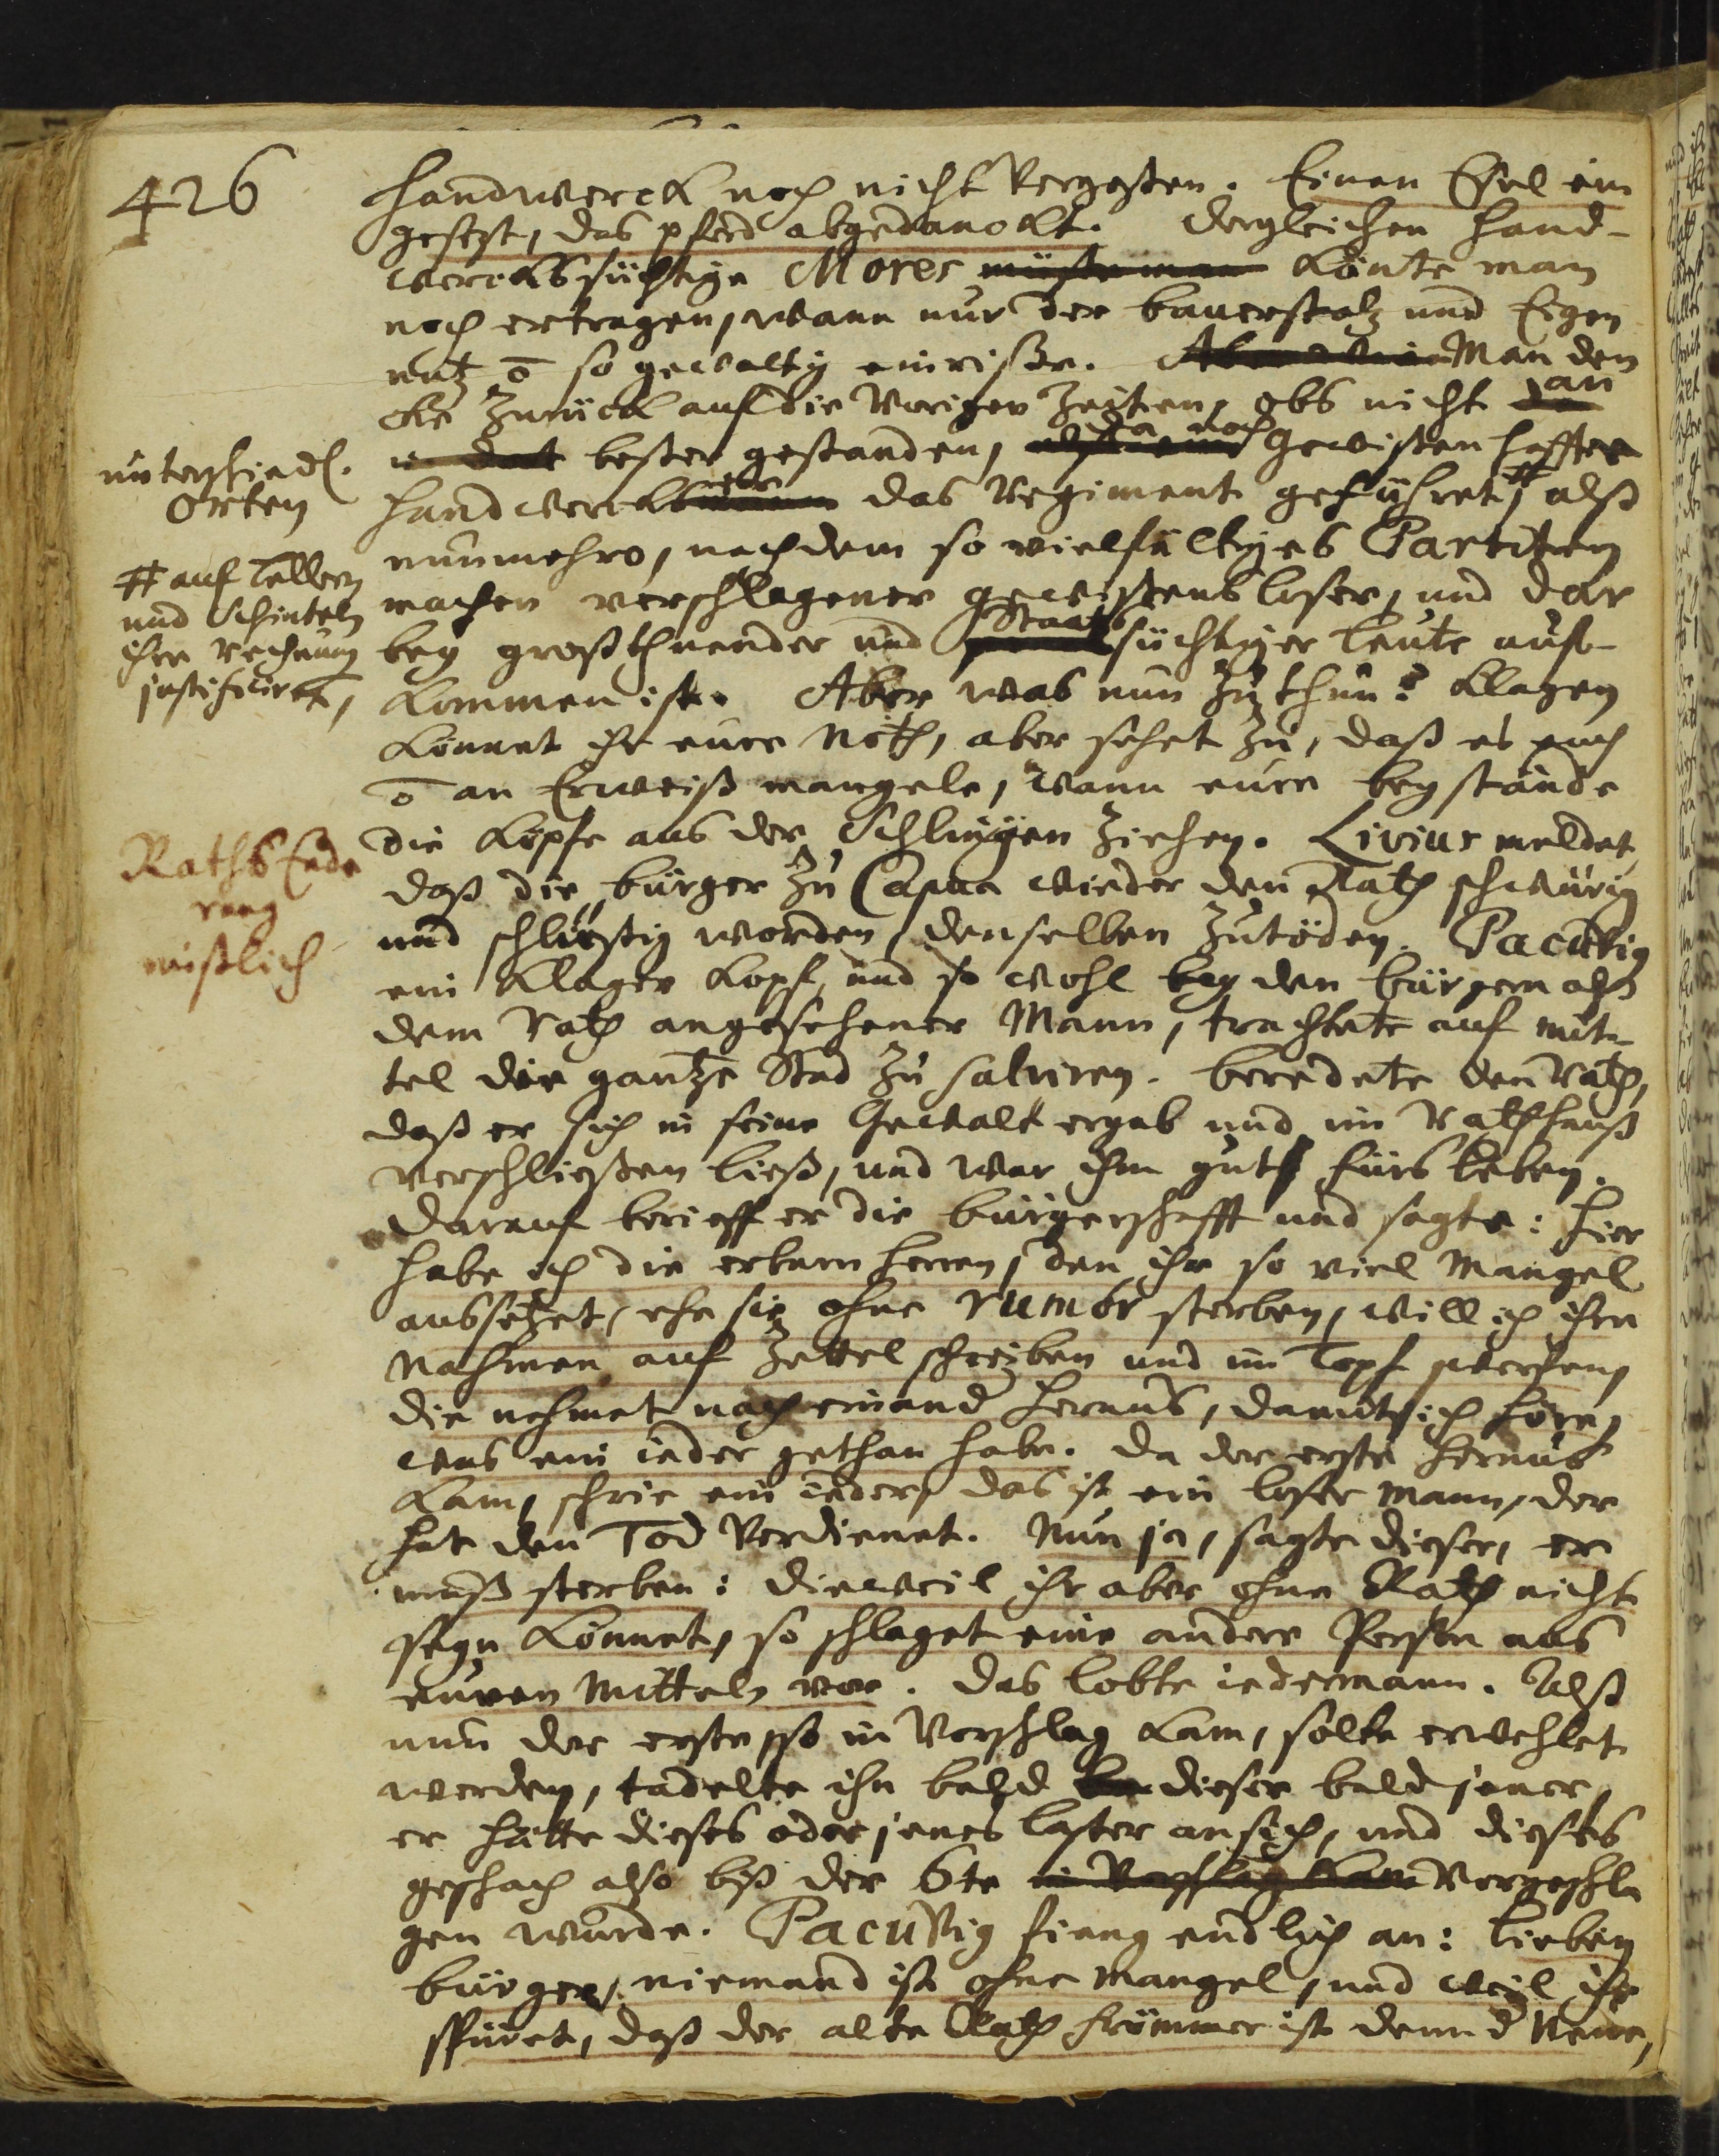 426
handwerck noch nicht vergeßen. Einen Esel ein
gesetzt, das pferd abgedanckt. Dergleichen hand-
wercksüchtige Mores müste man könte man
noch ertragen, wann nur der bauerstolz und Eigen
nutz ō so gewaltig einriße. Man den
cke zurück auf die vorigen Zeiten, obs nicht an
unterschiedl.
Orten
beßer gestanden, da noch gewißenhaffte
handwercks das Regiment geführet, # alß
# auf Tellern
und Schinteln
ihre rechnung
justificiret,
nunmehro, nachdem so vielfältiges Partiten
machen verschlagener gewißensloser, und dar
bey großthuender und Staatssüchtiger leute auf-
kommen ist. Aber was nun zu thun? klagen
könnet ihr eure Noth, aber sehet zu, daß es euch
ō an Erweiß mangele, wann eure beystände
die köpfe aus der Schlingen ziehen. Livius meldet,
Raths Ende
rung
mißlich
daß die bürger zu Capua wieder den Rath schwürig
und schlüßig worden, denselben zutöden. Pacuvig
ein kluger kopf, und so wohl bey den bürgern alß
dem Rath angesehener Mann, trachtete auf mit-
tel die gantze Stad zu salviren. beredete den Rath,
daß er sich in seine Gewalt ergab und im Rathhauß
verschließen ließ, und war ihm gut fürs leben.
Darauf berieff er die bürgerschafft und sagte: hier
habe ich die erbarn herren, den ihr so viel Mangel
aussetzet, ehe sie ohne rumor sterben, will ich ihre
Nahmen auf Zettel schreiben und im Topf werfen,
die nehmet nach einand heraus, damit ich höre,
was ein ieder gethan habe. Da der erste heraus
kam, schrie ein ieder, das ist ein loser mann, der
hat den Tod verdienet. Nun ja, sagte dieser, er
muß sterben: dieweil ihr aber ohne Rath nicht
seyn könnet, so schlaget eine andere Person aus
euren Mitteln vor. Das lobte iedermann. Alß
nun der erste so in Vorschlag kam, solte erwehlet
werden, tadelte ihn bald dieser bald jener,
er hätte dieses oder jenes laster an sich, und dieses
geschach also biß der 6te in Vorschlag kam vorgeschla
gen wurde. Pacuvig fieng endlich an: Lieben
bürger, niemand ist ohne Mangel, und weil ihr
spüret, daß der alte Rath frömmer ist denn d Neue,